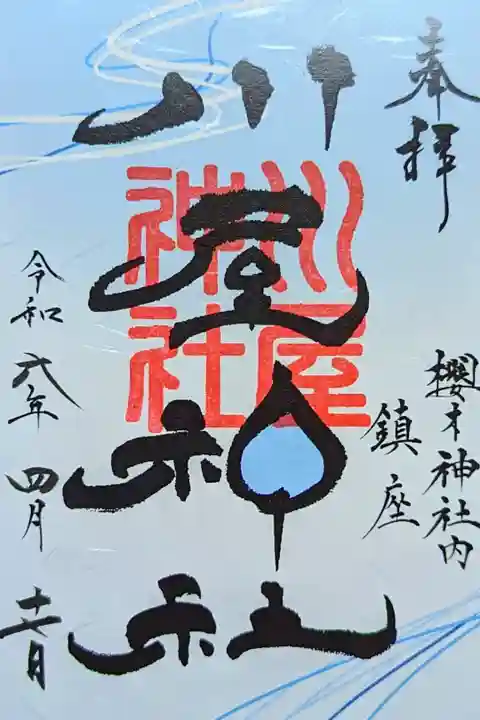 奉拝
櫻木神社内
鎮座
川屋神社
川屋
神社
令和六年 四月 十一日